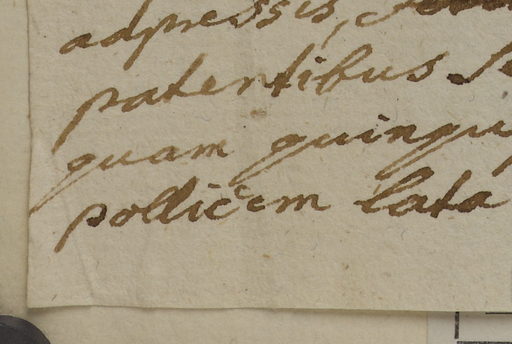 adpressis,
patentibus
quam quinqu
pollicem lata